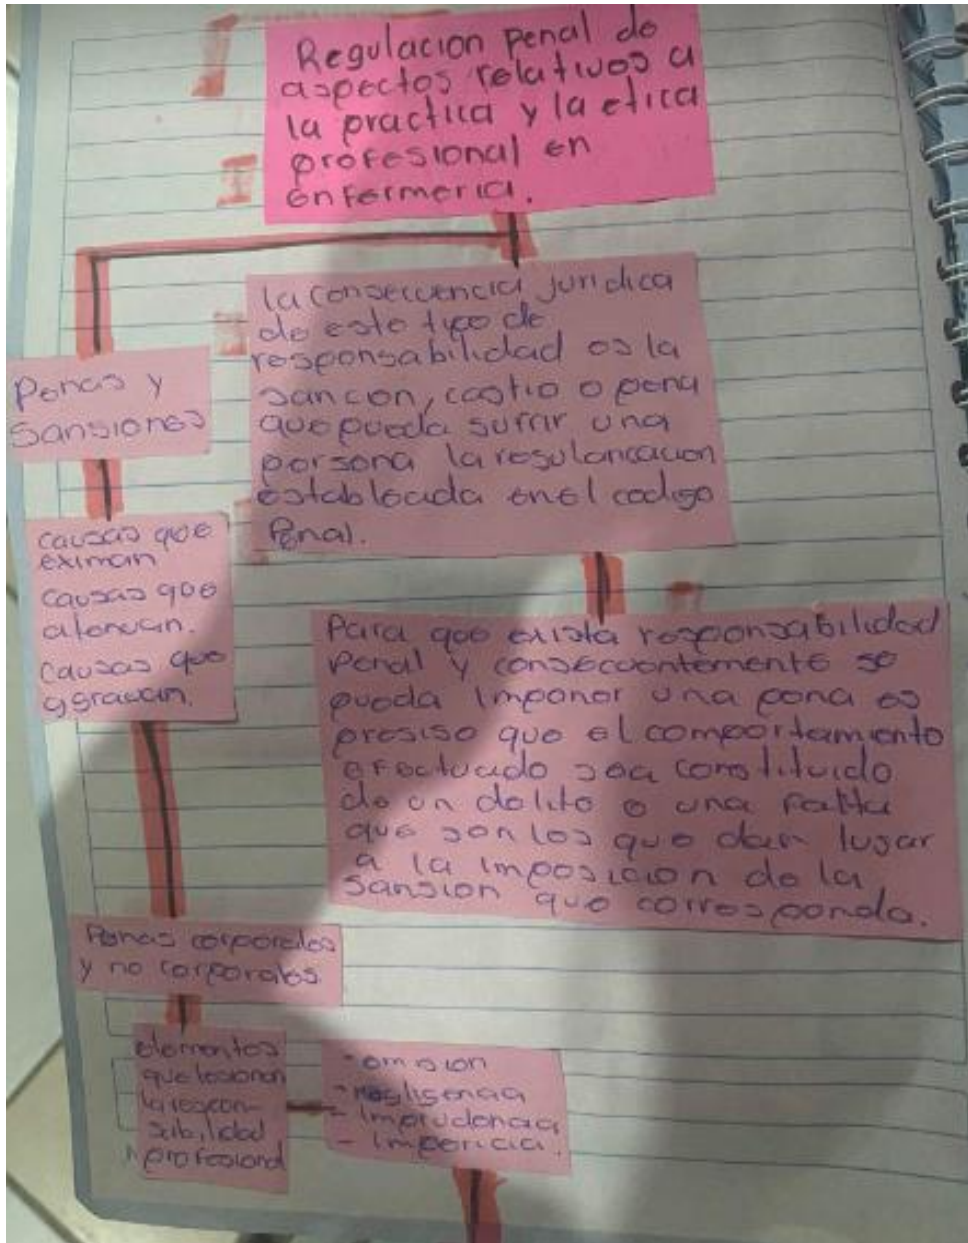 Regulacion penal de
aspectos relativos a
la practica y la etica
profesional en
enfermeria.
la consecuencia juridica
de este tipo de
responsabilidad es la
sancon, castio o pena
que pueda sufrir una
persona la resulancacion
establecida en el codigo
Penal.
Penas y
Sansiones
causas que
eximan
causas que
atenuan.
causas que
agravan.
Para que exista responsabilidad
Penal y consecuentemente se
pueda imponer una pena es
presiso que el comportamiento
efectuado sea constituido
de un delito o una falta
que son los que dan lugar
a la imposicion de la
Sansion que corresponda.
Penas corporales
y no corporales.
elementos
que lesionan
la respon-
sabilidad
profesional
- omision
- negligencia
- Imprudencia
- Impericia.